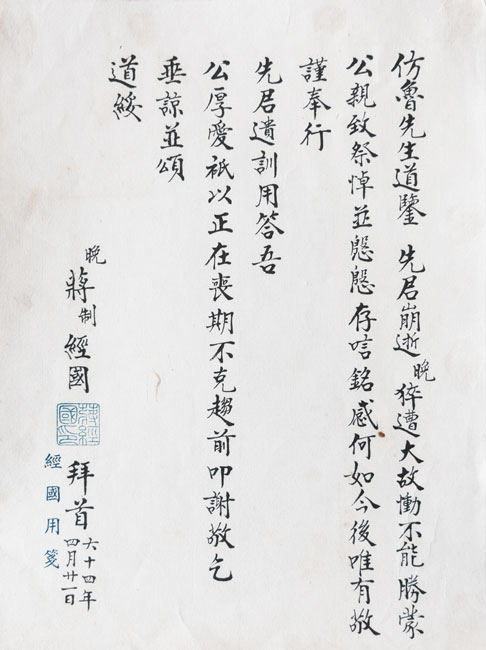 仿魯先生道鑒　先君崩逝晚猝遭大故慟不能勝蒙
公親致祭悼並慇慇存唁銘感何如今後唯有敬
謹奉行
先君遺訓用答吾
公厚愛衹以正在喪期不克趨前叩謝敬乞
垂諒並頌
道綏
晚制蔣經國
拜首
六十四年
四月廿一日
蔣經國印
經國用箋